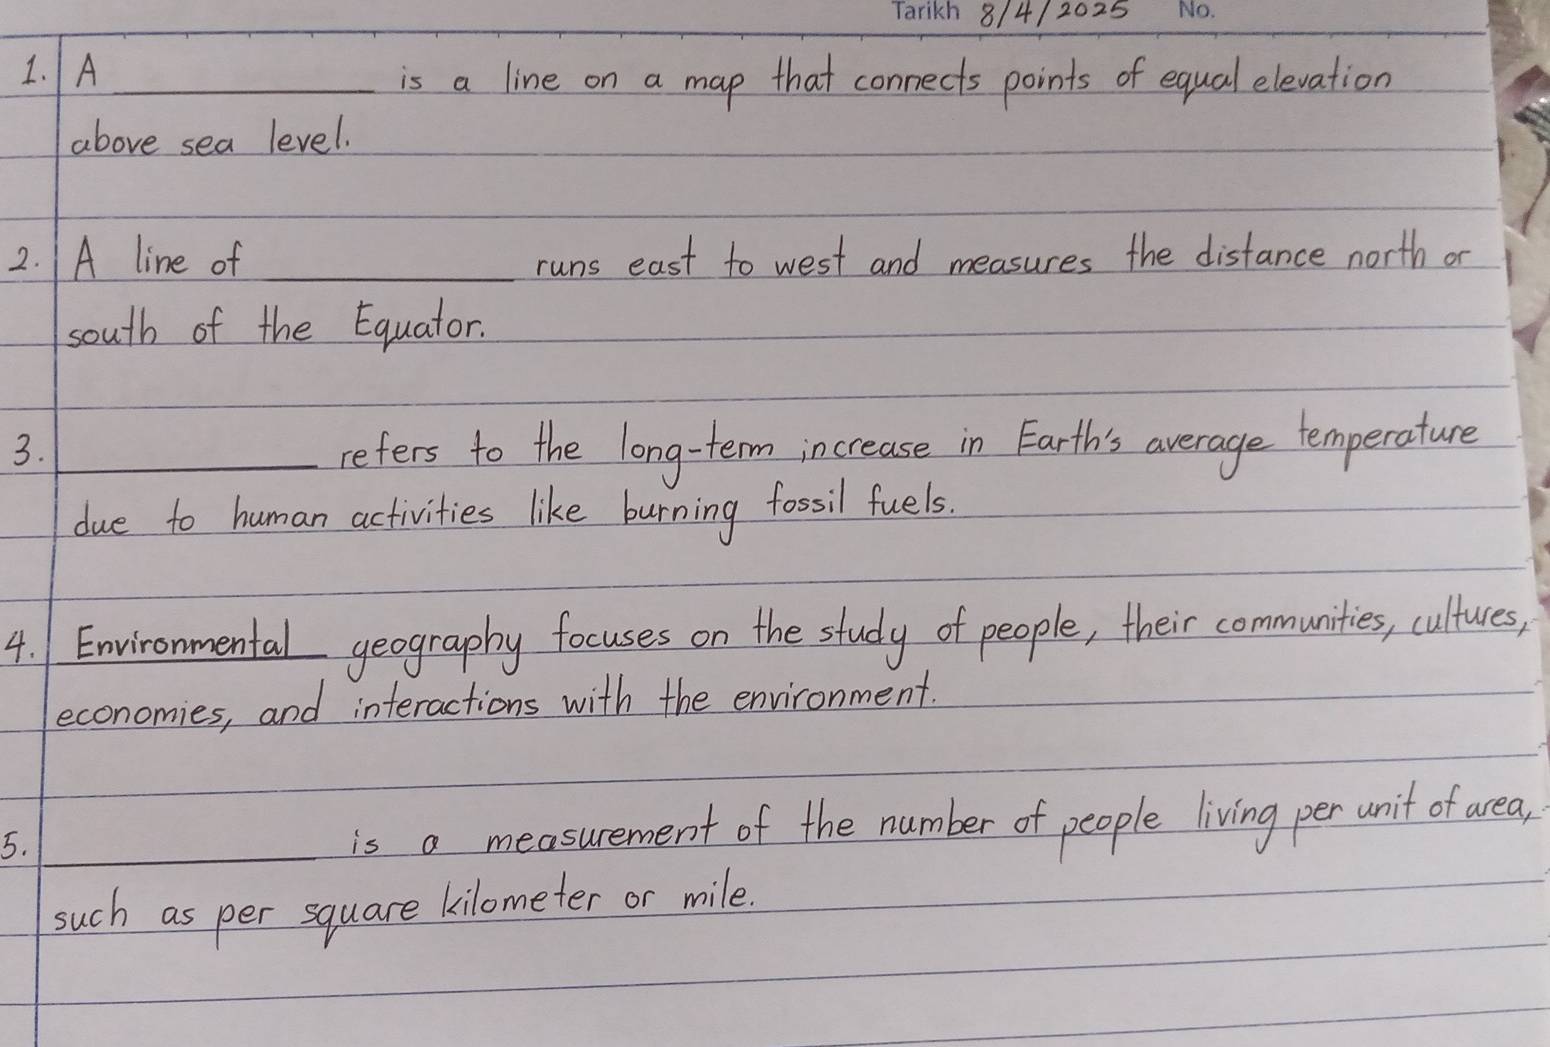 Tarikh 8/4/2025 No.
1. A __________ is a line on a map that connects points of equal elevation
above sea level.
2. A line of __________ runs east to west and measures the distance north or
south of the Equator.
3. __________ refers to the long-term increase in Earth's average temperature
due to human activities like burning fossil fuels.
4. Environmental geography focuses on the study of people, their communities, cultures,
economies, and interactions with the environment.
5. __________ is a measurement of the number of people living per unit of area,
such as per square kilometer or mile.